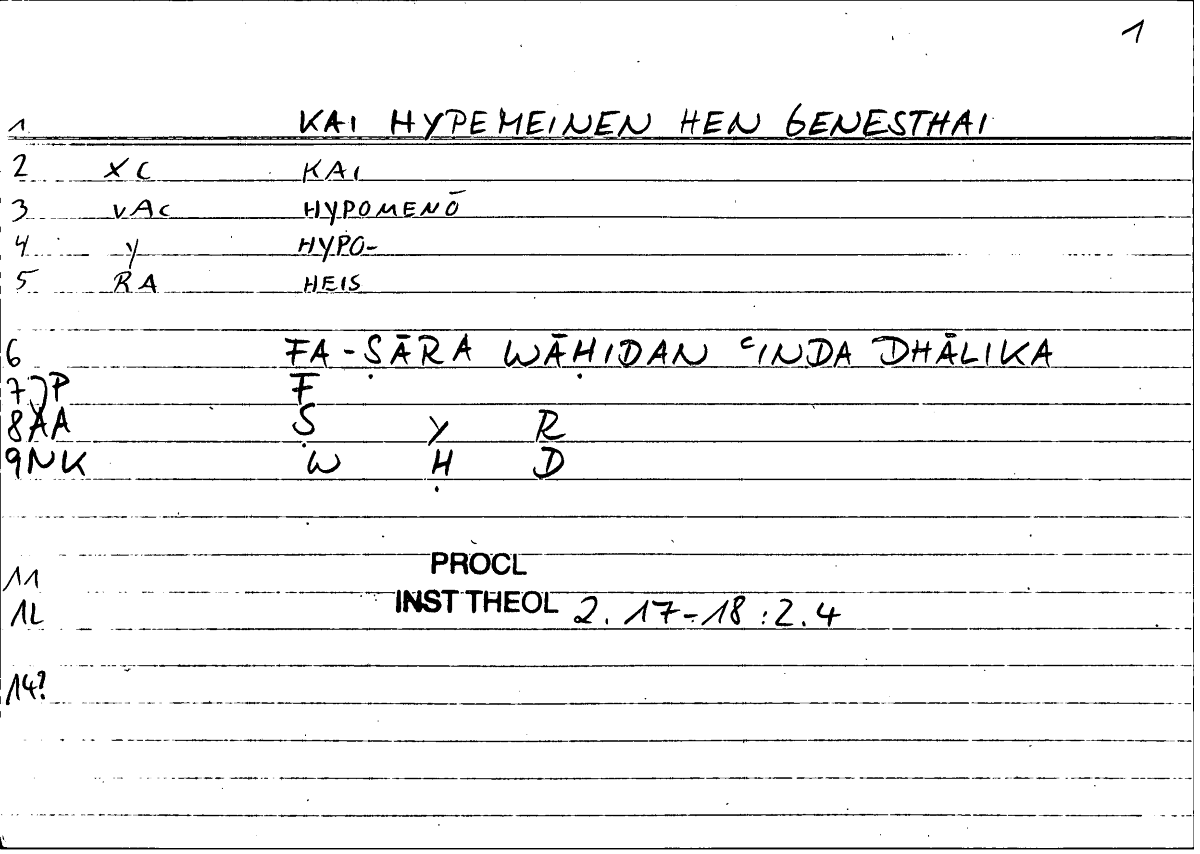 1
1 KAI HYPEMEINEN HEN GENESTHAI
2 XC KAI
3 VAC HYPOMENŌ
4 Y HYPO-
5 RA HEIS
6 FA-ṢĀRA WĀḤIDAN ʿINDA DHĀLIKA
7 JP F
8 XA Ṣ Y R
9 NK W Ḥ D
11 PROCL
12 INST THEOL 2. 17-18 : 2.4
14?